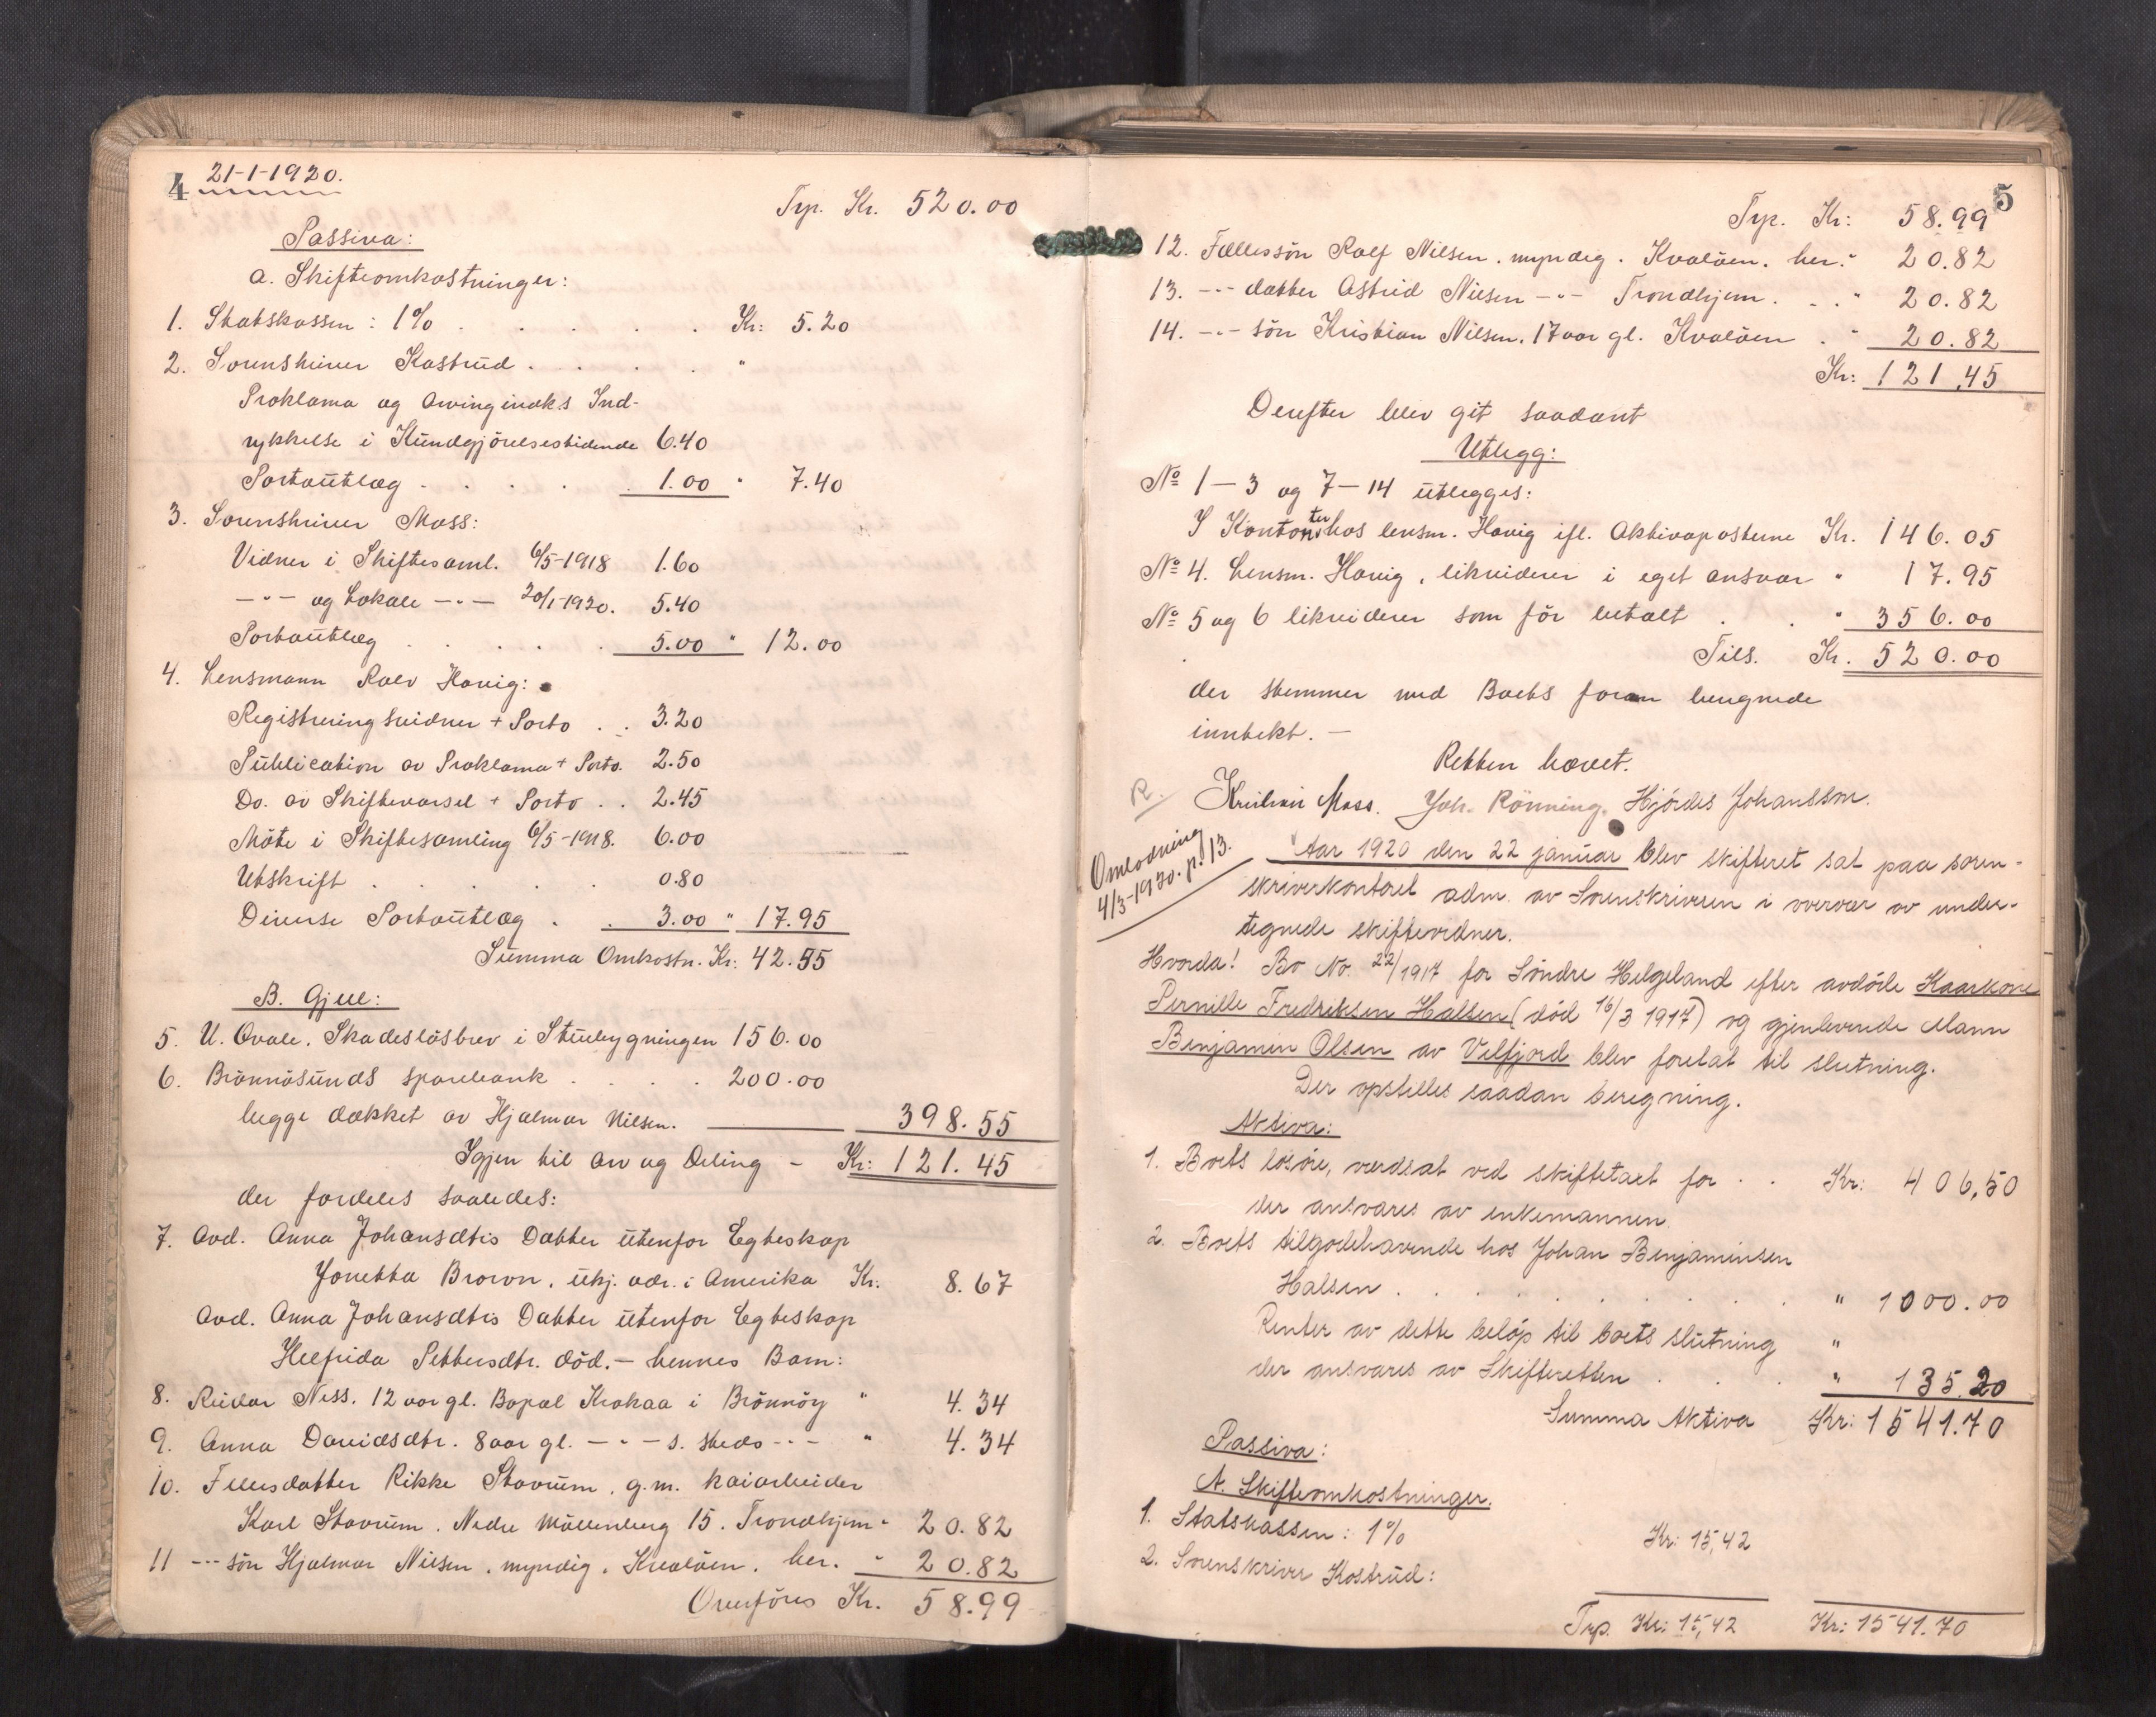 4 21-1-1920.
Trp. Kr. 520.00
Passiva:
a. Skifteomkostninger:
1. Statskassen: 1% . . . . . Kr: 5.20
2. Sorenskriver Kastrud . . . . . "
Proklama og Arvinginnk.s Ind-
rykkelse i Kundgjörelsestidende 6.40
Portoutlæg . . . . . 1.00 " 7.40
3. Sorenskriver Moss:
Vidner i Skiftesaml. 6/5-1918 1.60
-"- og Lokale -"- 20/1-1920. 5.40
Portoutlæg . . . . . 5.00 " 12.00
4. Lensmann Rolv Havig:
Registreringsvidner + Porto . . 3.20
Publication av Proklama + Porto. 2.50
Do. av Skiftevarsel + Porto . . 2.45
Möte i Skiftesamling 6/5-1918. 6.00
Utskrift . . . . . 0.80
Diverse Portoutlæg . . 3.00 " 17.95
Summa Omkostn. Kr: 42.55
B. Gjeld:
5. U. Qvale. Skadeslösbrev i Stuebygningen 156.00
6. Brönnösunds sparebank . . . . 200.00
begge dækket av Hjalmar Nilsen. 398.55
Igjen til Arv og Deling - Kr: 121.45
der fordeles saaledes:
7. Avd. Anna Johansdtrs Datter utenfor Egteskap
Jonetta Brown, ukj. adr. i Amerika Kr. 8.67
Avd. Anna Johansdtrs Datter utenfor Egteskap
Helfrida Pettersdtr. död. - hennes Barn:
8. Reidar Ness. 12 aar gl. Bopæl Krokaa i Brönnöy " 4.34
9. Anna Davidsdtr. 8 aar gl. -"- s. steds -"- " 4.34
10. Fellesdatter Rikke Stavrum, g.m. kaiarbeider
Karl Stavrum. Nedre Möllenberg 15. Trondhjem " 20.82
11 -"- sön Hjalmar Nilsen, myndig, Kvalöen, her. " 20.82
Overföres Kr. 58.99
5
Trp. Kr: 58.99
12. Fællessön Rolf Nilsen. myndig. Kvalöen. her. " 20.82
13. -"- datter Astrid Nilsen -"- Trondhjem . . . " 20.82
14. -"- sön Kristian Nilsen. 17 aar gl. Kvalöen . " 20.82
Kr: 121,45
Derefter blev git saadant
Utlegg:
No 1-3 og 7-14 utlegges:
I Kontanter hos lensm. Havig ifl. Aktivaposterne Kr. 146.05
No 4. Lensm. Havig, likviderer i eget ansvar " 17.95
No 5 og 6 likviderer som för betalt . . " 356.00
Tils. Kr. 520.00
der stemmer med Boets foran beregnede
inntekt. -
Retten hævet.
R. Kristian Moss. Joh. Rönning. Hjördis Johansson.
Omlodning
4/3-1920. p. 13.
Aar 1920 den 22 januar blev skifteret sat paa soren-
skriverkontoret adm. av Sorenskriveren i overvær av under-
tegnede skiftevidner.
Hvorda! Bo No. 22/1917 for Söndre Helgeland efter avdöde Kaarkone
Pernille Fredriksen Halsen (död 16/3 1917) og gjenlevende Mann
Benjamin Olsen av Velfjord blev foretat til slutning.
Der opstilles saadan beregning.
Aktiva:
1. Boets lösöre, værdsat ved skiftetaxt for . . Kr: 406,50
der ansvares av enkemannen.
2. Boets tilgodehavende hos Johan Benjaminsen
Halsen . . . . . . . . " 1000.00
Renter av dette belöp til boets slutning "
der ansvares av Skifteretten . . . " 135.20
Summa Aktiva Kr: 1541.70
Passiva:
A. Skifteomkostninger.
1. Statskassen: 1% Kr: 15,42
2. Sorenskriver Kostrud:
Trp. Kr: 15,42 Kr: 1541.70